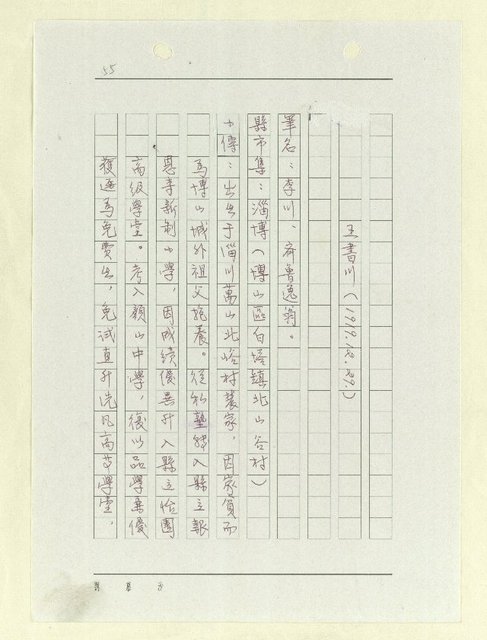 55
王書川(1919.12.29)
筆名:李川、齊魯逸翁。
縣市集:淄博(博山區白塔鎮北山谷村)
小傳:出生于淄川萬山北峪村農家,因家貧而
為博山城外祖父撫養。從私塾轉入縣立報
恩寺新制小學,因成績優異升入縣立怡園
高級學堂。考入顏山中學,復以品學兼優
獲選為免費生,免試直升洗凡高中學堂,